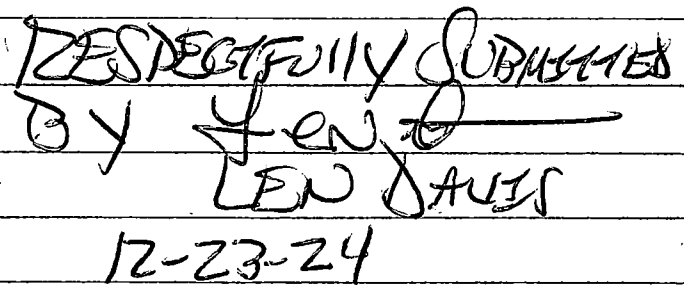 RESPECTFULLY SUBMITTED
BY Len D
LEN DAVIS
12-23-24